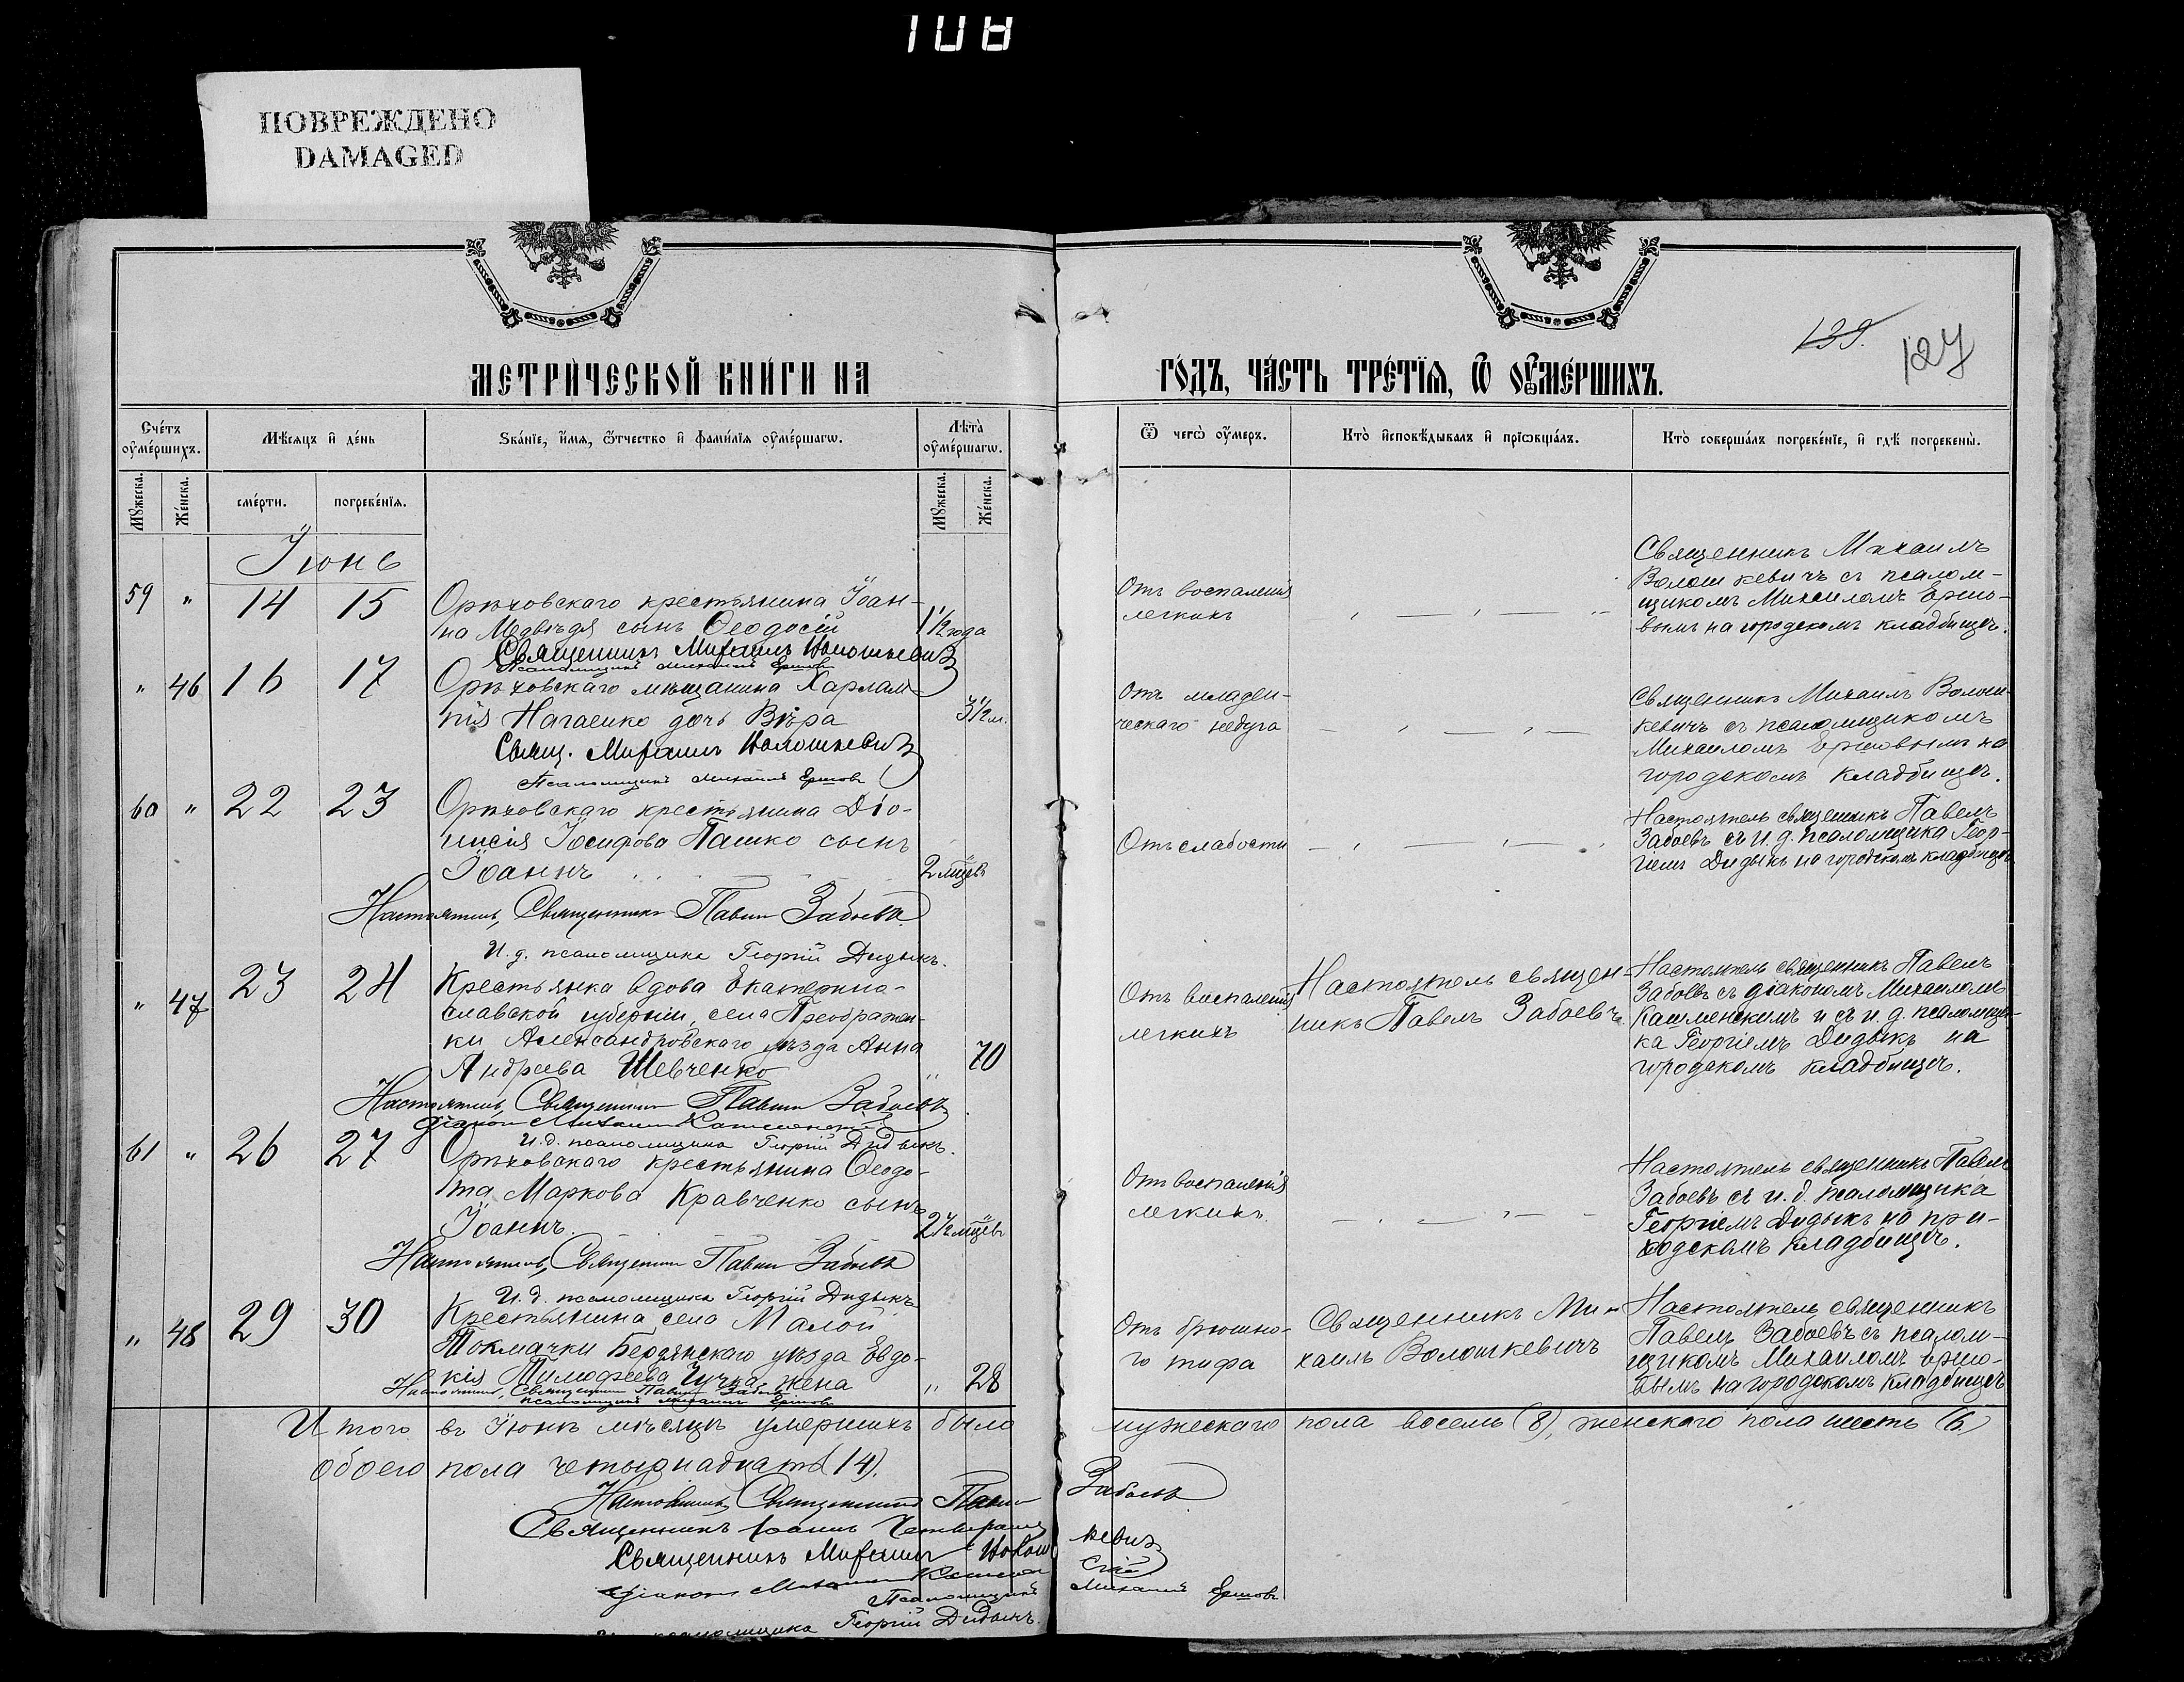 108
ПОВРЕЖДЕНО
DAMAGED
МЕТРИ́ЧЕСКОЙ КНИ́ГИ НА
ГО́ДЪ, ЧА́СТЬ ТРЕ́ТЇѦ, Ѿ ОУМЕ́РШИХЪ.
139.
127
Сче́тъ оумершихъ.
Мѣ́сяцъ и де́нь
Зва́нїе, и́мя, ѻ҆́тчество и фами́лїя оуме́ршагѡ.
Лѣ́та оуме́ршагѡ.
Ѿ чегѡ̀ оу́меръ.
Кто̀ и҆сповѣ́дывалъ и҆ прїѡбща́лъ.
Кто̀ соверша́лъ погребе́нїе, и҆ гдѣ̀ погребены̀.
Му́жеска.
Же́нска.
сме́рти.
погребе́нїя.
Му́жеска.
Же́нска.
Іюнь
59 " 14 15
Орѣховскаго крестьянина Іоан-
на Медвѣдя сынъ Ѳеодосій
1½ года
Священникъ Михаилъ Волошкевичъ
Псаломщикъ Михаилъ Ершовъ
Отъ воспаленія
легкихъ
Священникъ Михаилъ
Волошкевичъ съ псалом-
щикомъ Михаиломъ Ершо-
вымъ на городскомъ кладбищѣ.
" 46 16 17
Орѣховскаго мѣщанина Харлам-
пія Нагаенко дочь Вѣра
3½ м.
Свящ. Михаилъ Волошкевичъ
Псаломщикъ Михаилъ Ершовъ
Отъ младен-
ческаго недуга
Священникъ Михаилъ Волош-
кевичъ съ псаломщикомъ
Михаиломъ Ершовымъ на
городскомъ кладбищѣ.
60 " 22 23
Орѣховскаго крестьянина Діо-
нисія Іосифова Пашко сынъ
Іоаннъ
2 мцѣв
Настоятель, Священникъ Павелъ Забоевъ
И. д. псаломщика Георгій Дидыкъ.
Отъ слабости
Настоятель священникъ Павелъ
Забоевъ съ и. д. псаломщика Геор-
гіемъ Дидыкъ на городскомъ кладбищѣ
" 47 23 24
Крестьянка вдова Екатерино-
славской губерніи, села Преображен-
ки Александровскаго уѣзда Анна
Андреева Шевченко
" 70
Настоятель, Священникъ Павелъ Забоевъ
Діаконъ Михаилъ Кашменскій
И. д. псаломщика Георгій Дидыкъ.
Отъ воспаленія
легкихъ
Настоятель священ-
никъ Павелъ Забоевъ
Настоятель священникъ Павелъ
Забоевъ съ діакономъ Михаиломъ
Кашменскимъ и съ и. д. псаломщи-
ка Георгіемъ Дидыкъ на
городскомъ кладбищѣ.
61 " 26 27
Орѣховскаго крестьянина Ѳеодо-
та Маркова Кравченко сынъ
Іоаннъ.
мцѣв
Настоятель, Священникъ Павелъ Забоевъ
И. д. псаломщика Георгій Дидыкъ
Отъ воспаленія
легкихъ.
Настоятель священникъ Павелъ
Забоевъ съ и. д. псаломщика
Георгіемъ Дидыкъ на при-
ходскомъ кладбищѣ.
" 48 29 30
Крестьянина села Малой
Токмачки Бердянскаго уѣзда Евдо-
кія Тимофеева жена
" 28
Настоятель, Священникъ Павелъ Забоевъ
псаломщикъ Михаилъ Ершовъ
Отъ брюшно-
го тифа
Священникъ Ми-
хаилъ Волошкевичъ
Настоятель священникъ
Павелъ Забоевъ съ псалом-
щикомъ Михаиломъ Ершо-
вымъ на городскомъ кладбищѣ
Итого въ Іюнѣ мѣсяцѣ умершихъ было мужескаго пола восемь (8), женскаго пола шесть (6)
обоего пола четырнадцать (14).
Настоятель, Священникъ Павелъ Забоевъ
Священникъ Іоаннъ
Священникъ Михаилъ Волошкевичъ
Діаконъ Михаилъ Кашменскій
Псаломщикъ Михаилъ Ершовъ
псаломщика Георгій Дидыкъ.